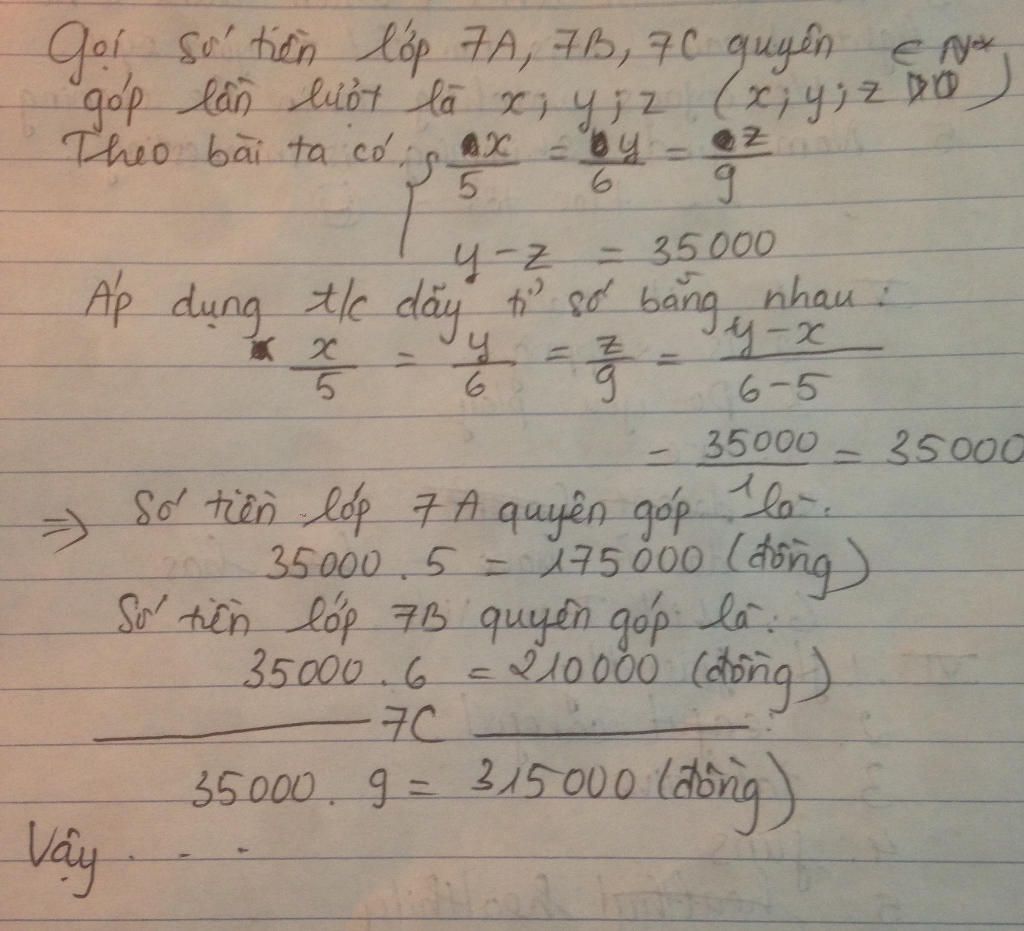 Gọi số tiền lớp 7A, 7B, 7C quyên ∈ N*
góp lần lượt là x; y; z (x; y; z )
Theo bài ta có: { x/5 = y/6 = z/9
y - z = 35000
Áp dụng t/c dãy tỉ số bằng nhau:
x/5 = y/6 = z/9 = (y - x)/(6 - 5)
= 35000/1 = 35000
=> Số tiền lớp 7A quyên góp là:
35000 . 5 = 175000 (đồng)
Số tiền lớp 7B quyên góp là:
35000 . 6 = 210000 (đồng)
——— 7C ———:
35000 . 9 = 315000 (đồng)
Vậy . . .